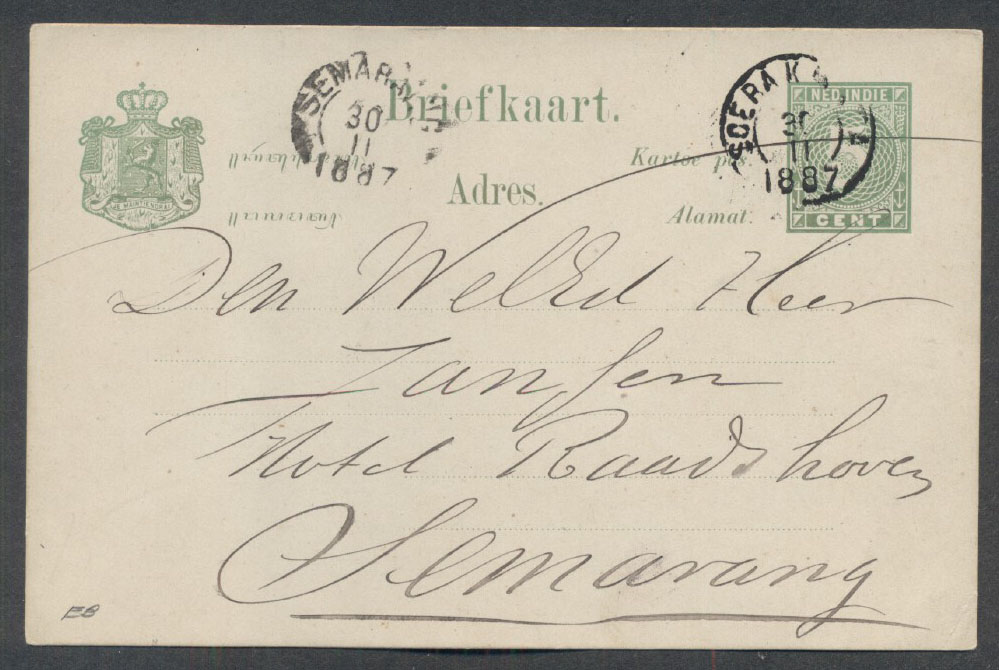 SEMARANG
30
11
1887
Briefkaart.
Adres.
Kartoe pos.
Alamat.
SOERAKARTA
30
11
1887
NED. INDIE
CENT
JE MAINTIENDRAI
Den WelEd Heer
Jansen
Hotel Raadshoven
Semarang
EB